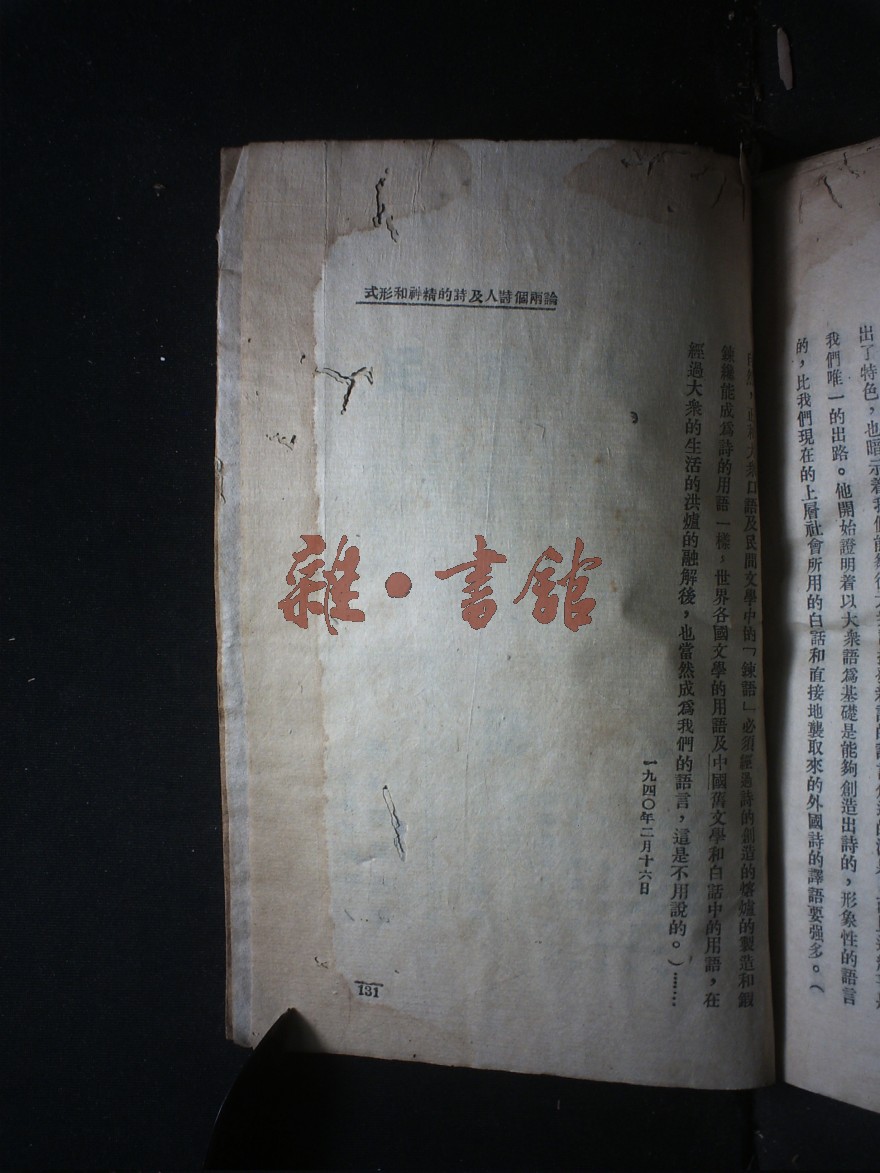 出了特色，也暗示着我們
我們唯一的出路。他開始證明着以大衆語爲基礎是能夠創造出詩的，形象性的語言
的，比我們現在的上層社會所用的白話和直接地襲取來的外國詩的譯語要强多。（
論兩個詩人及詩的精神和形式
大衆口語及民間文學中的「鍊語」必須經過詩的創造的熔爐的製造和鍛
鍊纔能成爲詩的用語一樣，世界各國文學的用語及中國舊文學和白話中的用語，在
經過大衆的生活的洪爐的融解後，也當然成爲我們的語言，這是不用說的。）……
一九四〇年二月十六日
131
雜·書館